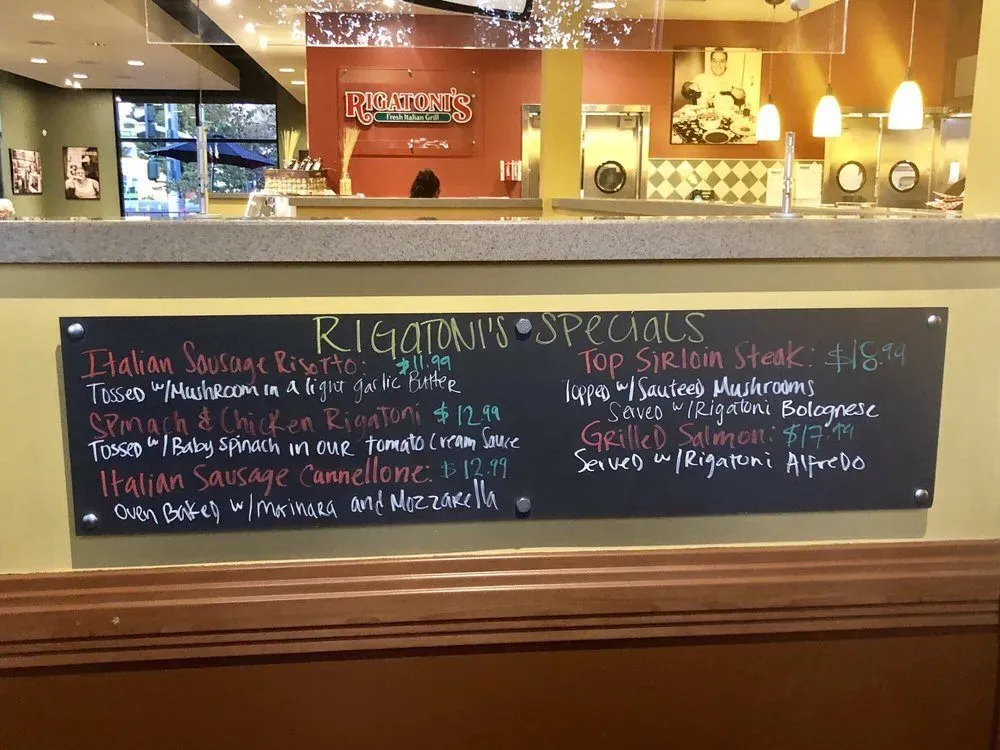 RIGATONI'S
Fresh Italian Grill
RIGATONI'S SPECIALS
Italian Sausage Risotto: $11.99
Tossed w/Mushroom in a light garlic Butter
Spinach & Chicken Rigatoni $12.99
Tossed w/Baby spinach in our tomato cream Sauce
Italian Sausage Cannellone: $12.99
Oven Baked w/marinara and Mozzarella
Top Sirloin Steak: $18.99
Topped w/Sauteed Mushrooms
Served w/Rigatoni Bolognese
Grilled Salmon: $17.99
Served w/Rigatoni Alfredo